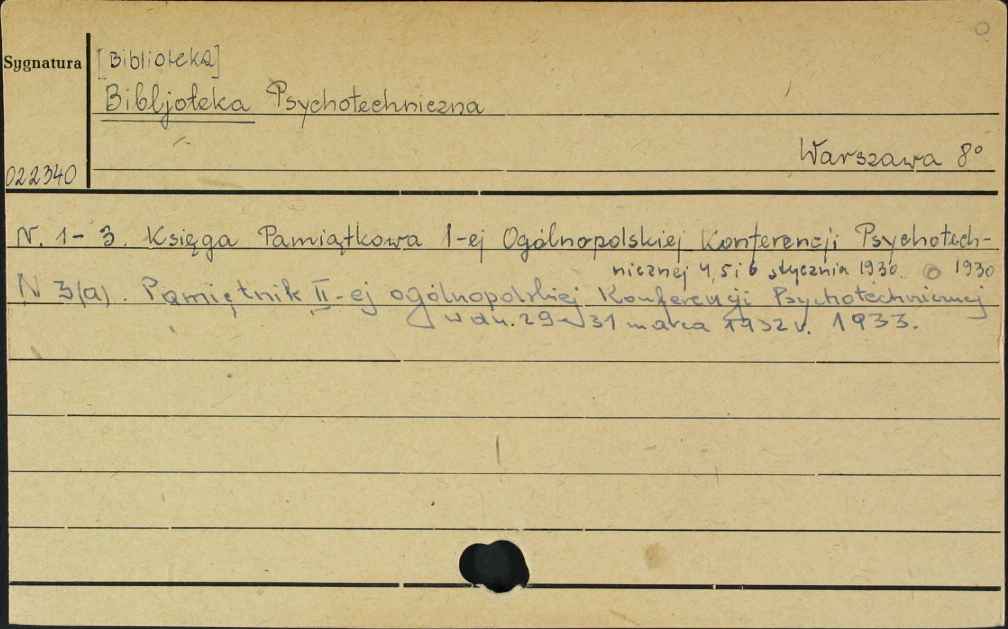 Sygnatura
[Biblioteka]
Bibljoteka Psychotechniczna
Warszawa 8°
022340
N. 1-3. Księga Pamiątkowa I-ej Ogólnopolskiej Konferencji Psychotech-
nicznej 4, 5 i 6 stycznia 1930. 1930
N 3(a). Pamiętnik II-ej ogólnopolskiej Konferencji Psychotechnicznej
w dn. 29-31 marca 1932 r. 1933.